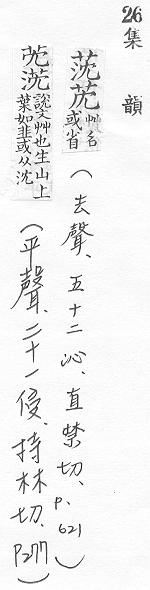 26集韻
莐 艸名或省(去聲、五十二沁、直禁切、p.621)
莐 說文艸也生山上葉如韭或从沈(平聲、二十一侵、持林切、P277)